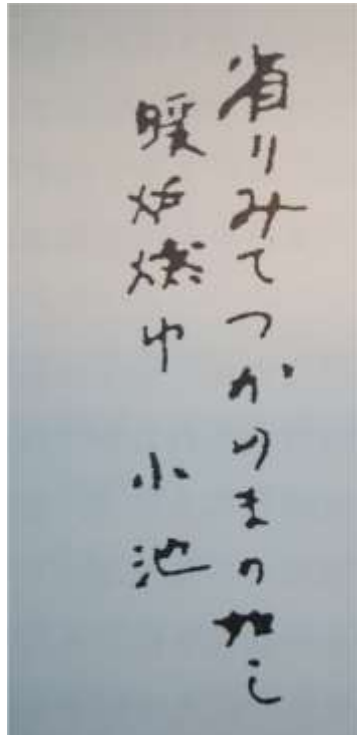 省りみてつかのまの如し
暖炉燃ゆ 小池